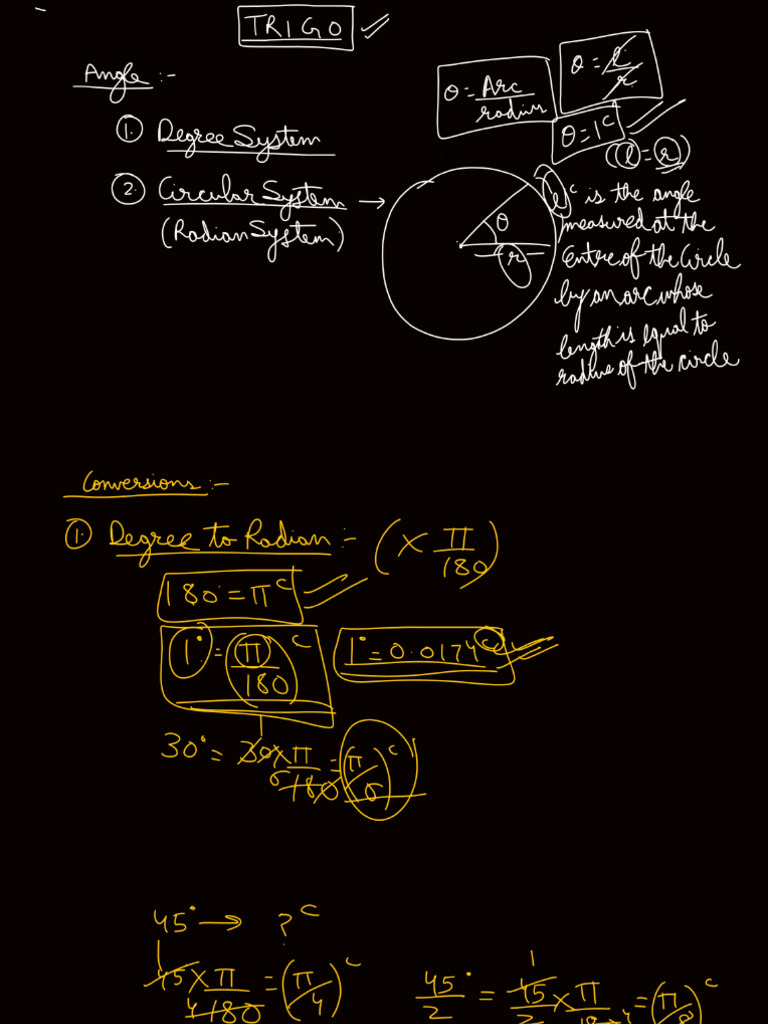 TRIGO
Angle :-
① Degree System
② Circular System →
(Radian System)
θ = Arc/radius
θ = l/r
θ = 1ᶜ
(l = r)
θ
r
l
1ᶜ is the angle
measured at the
Centre of the Circle
by an arc whose
length is equal to
radius of the circle
Conversions :-
① Degree to Radian :- (× π/180)
180° = πᶜ
1° = π/180 ᶜ
1° = 0.0174ᶜ
30° = 30 × π/180 = (π/6)ᶜ
1
6
45° → ?ᶜ
1
45 × π/180 = (π/4)ᶜ
4
45°/2 = 45/2 × π/180 = (π/8)ᶜ
1
4